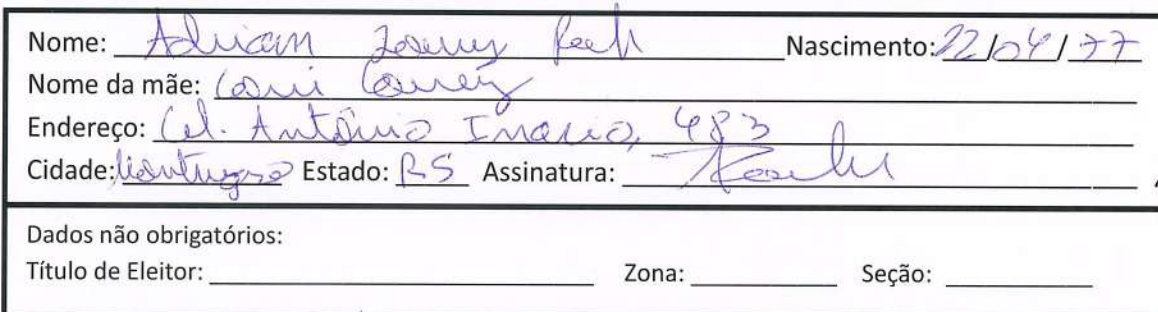 Nome: Adrian Nascimento: 22/04/77
Nome da mãe:
Endereço: Cel. Antônio Inácio, 483
Cidade: Montenegro Estado: RS Assinatura:
Dados não obrigatórios:
Título de Eleitor: Zona: Seção: